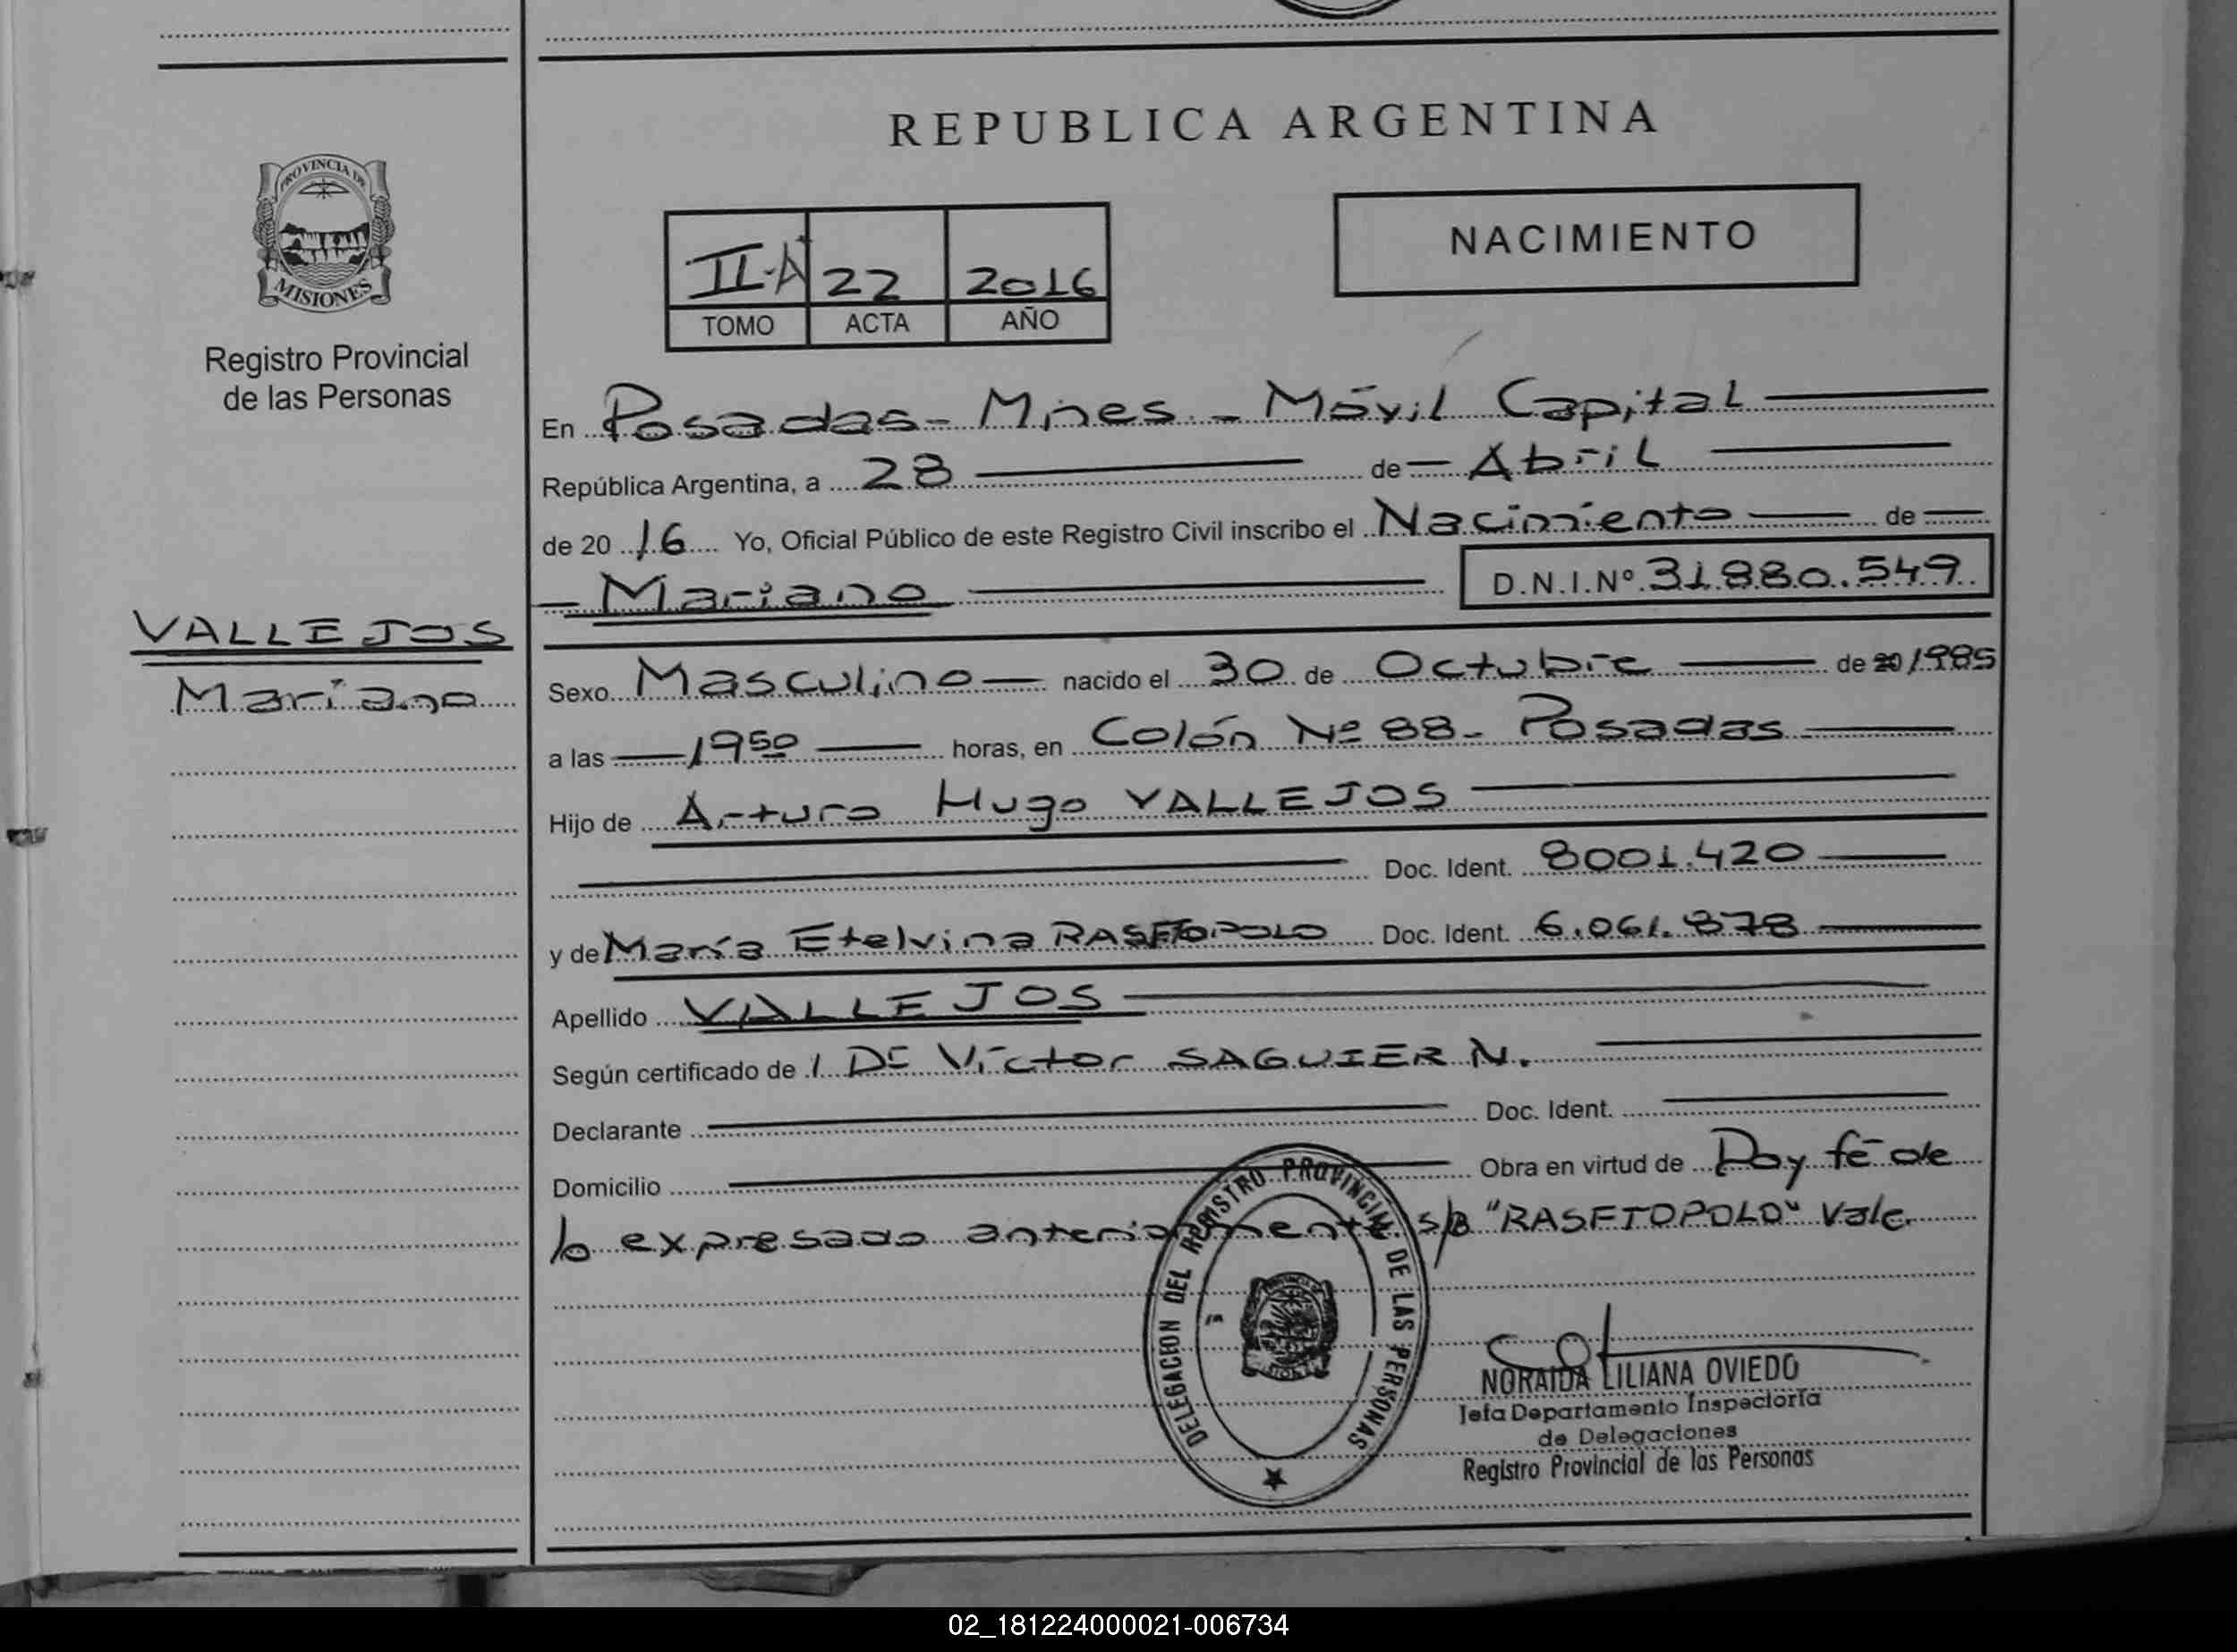 REPUBLICA ARGENTINA
PROVINCIA DE
MISIONES
Registro Provincial
de las Personas
II-A 22 2016
TOMO ACTA AÑO
NACIMIENTO
En Posadas - Mnes - Móvil Capital
República Argentina, a 28 de Abril
de 2016 Yo, Oficial Público de este Registro Civil inscribo el Nacimiento de
Mariano D.N.I.Nº 31.880.549
VALLEJOS
Mariano
Sexo Masculino nacido el 30 de Octubre de 20/1985
a las 19 50 horas, en Colón Nº 88 - Posadas
Hijo de Arturo Hugo VALLEJOS
Doc. Ident. 8001.420
y de María Etelvina RASFTOPOLO Doc. Ident. 6.061.878
Apellido VALLEJOS
Según certificado de / Dr Víctor SAGUIER N.
Declarante Doc. Ident.
Domicilio Obra en virtud de Doy fé de
lo expresado anteriormente. s/B "RASFTOPOLO" Vale.
DELEGACION DEL REGISTRO PROVINCIAL DE LAS PERSONAS
NORAIDA LILIANA OVIEDO
Jefa Departamento Inspectoría
de Delegaciones
Registro Provincial de las Personas
02_181224000021-006734